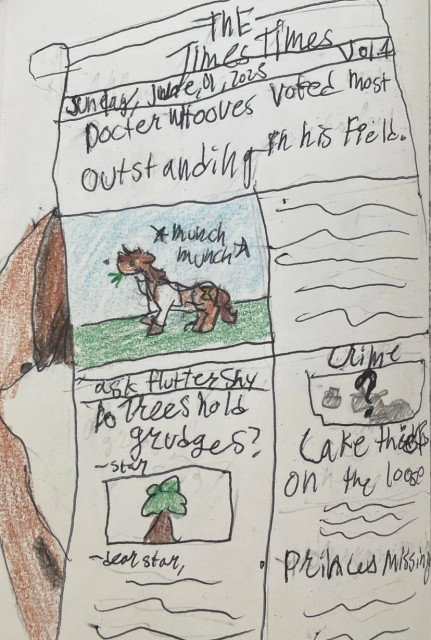 THE
Times Times
Vol.1
Sunday, June, 01, 2025
Docter Whooves voted most
outstanding in his field.
munch
munch
ask fluttershy
Do trees hold
grudges?
~star
~dear star,
Crime
?
Cake thiefs
on the loose
Princes Missing